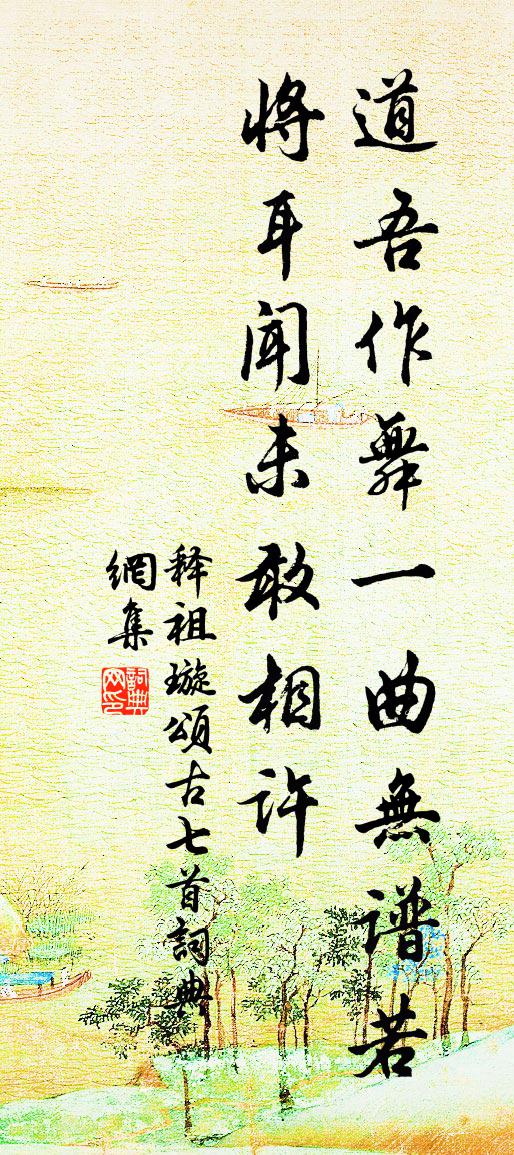 道吾作舞一曲無譜若
将耳聞未敢相許
释祖璇頌古七首詞典
網集
詞典網印